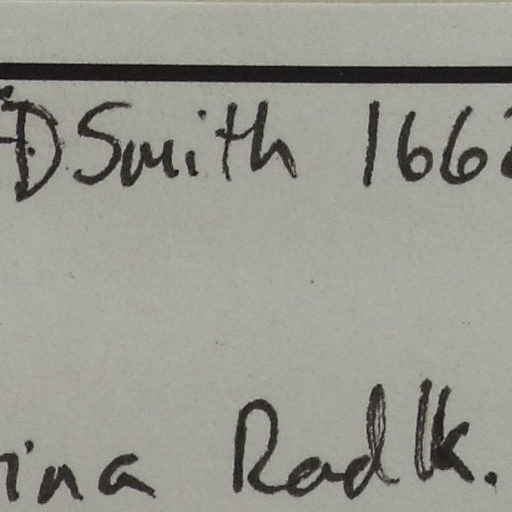 D Smith 166
ina Radlk.